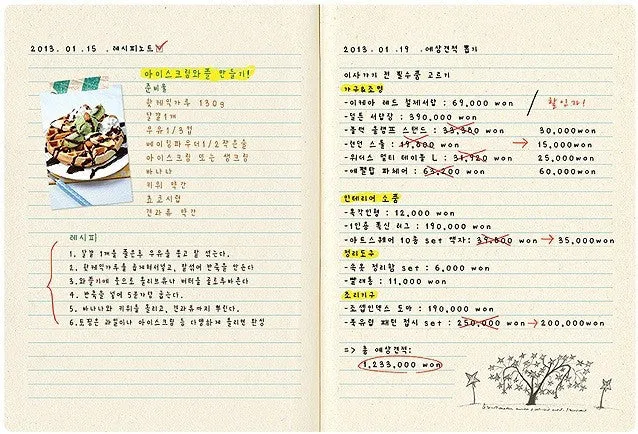 2013. 01. 15. 레시피노트
아이스크림와플 만들기!
준비물
핫케익가루 130g
달걀1개
우유1/3컵
베이킹파우더1/2작은술
아이스크림 또는 생크림
바나나
키위 약간
초코시럽
견과류 약간
레시피
1. 달걀 1개을 풀은후 우유을 붓고 잘 섞는다.
2. 핫케익가루을 곱게쳐서넣고, 잘섞어 반죽을 만든다
3. 와플기에 붓으로 올리브유나 버터을 골고루바른다
4. 반죽을 넣어 5분가량 굽는다.
5. 바나나와 키위을 올리고, 견과류까지 뿌린다.
6. 토핑은 과일이나 아이스크림 등 다양하게 올리면 완성
2013. 01. 19. 예상견적 뽑기
이사가기 전 필수품 고르기
가구&조명
-이케아 레드 철제서랍 : 69,000 won
할인가!
-월든 서랍장 : 390,000 won
-블랙 울랄프 스탠드 : 33,300 won 30,000won
-런던 스툴 : 19,800 won → 15,000won
-위더스 멀티 테이블 L : 31,920 won 25,000won
-에펠탑 파체어 : 63,200 won 60,000won
인테리어 소품
-목각인형 : 12,000 won
-1인용 폭신 러그 : 190,000 won
-아트스퀘어 10종 set 액자 : 39,800 won → 35,000won
정리도구
-속옷 정리함 set : 6,000 won
-빨래통 : 11,000 won
조리기구
-조셉인덱스 도마 : 190,000 won
-북유럽 패턴 접시 set : 250,000 won → 200,000won
=> 총 예상견적:
1,233,000 won